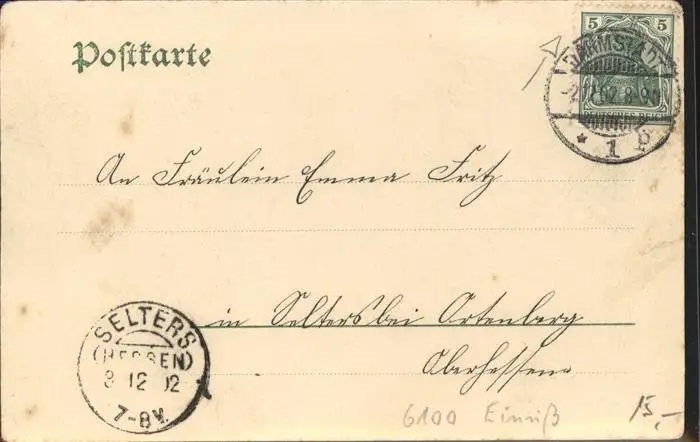 Postkarte
5 5
DARMSTADT
8-9N
DEUTSCHES REICH
* 1 p.
An Fräulein Emma Fritz
in Selters bei Ortenberg
Oberhessen
SELTERS
(HESSEN)
3 12 02
7-8V.
6100 Einriß 15,-